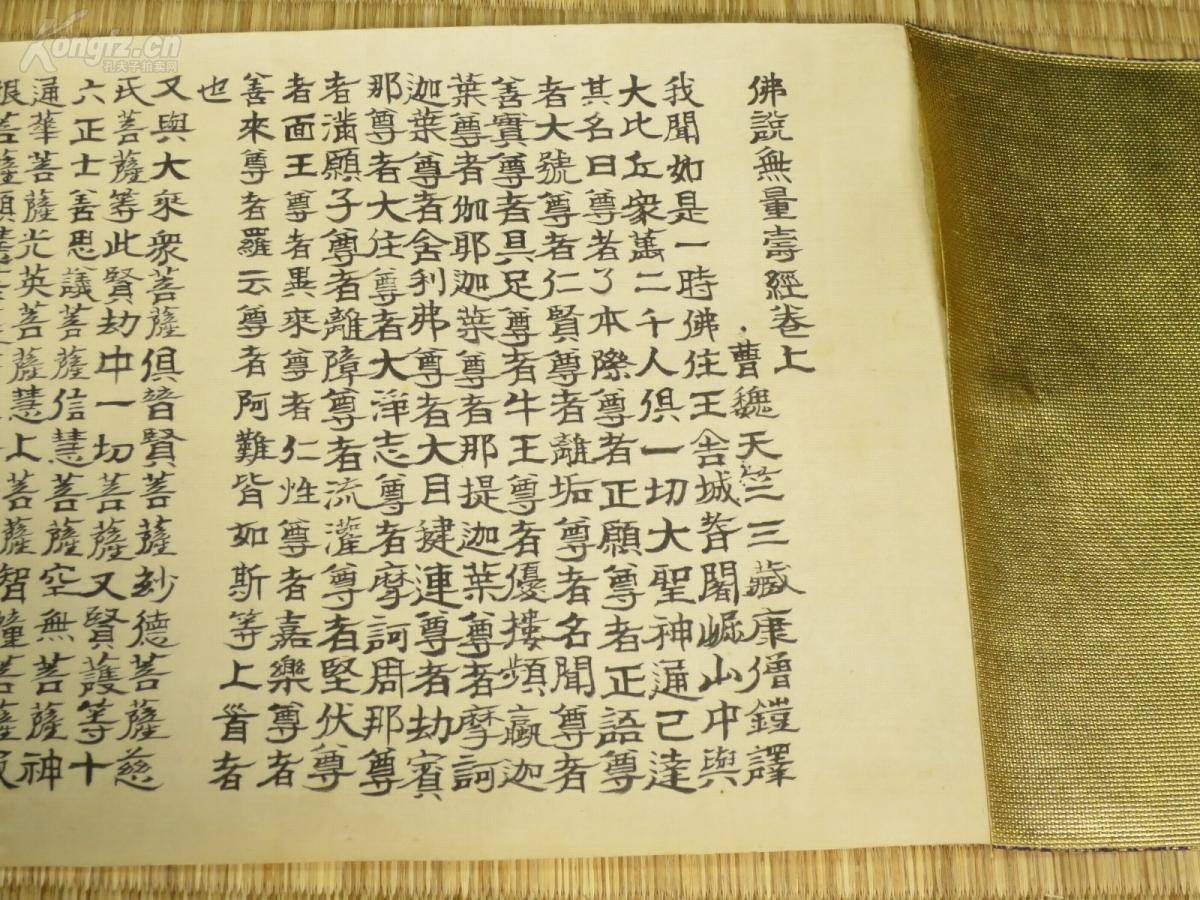 佛說無量壽經卷上
曹魏天竺三藏康僧鎧譯
我聞如是一時佛住王舍城耆闍崛山中與
大比丘衆萬二千人俱一切大聖神通已達
其名曰尊者了本際尊者正願尊者正語尊
者大號尊者仁賢尊者離垢尊者名聞尊者
善實尊者具足尊者牛王尊者優摟頻蠃迦
葉尊者伽耶迦葉尊者那提迦葉尊者摩訶
迦葉尊者舍利弗尊者大目揵連尊者劫賓
那尊者大住尊者大淨志尊者摩訶周那尊
者滿願子尊者離障尊者流灌尊者堅伏尊
者面王尊者異乘尊者仁性尊者嘉樂尊者
善來尊者羅云尊者阿難皆如斯等上首者
也
又與大乘衆菩薩俱普賢菩薩妙德菩薩慈
氏菩薩等此賢劫中一切菩薩又賢護等十
六正士善思議菩薩信慧菩薩空無菩薩神
通華菩薩光英菩薩慧上菩薩智幢菩薩寂
根菩薩願慧
Kongfz.cn
孔夫子拍卖网